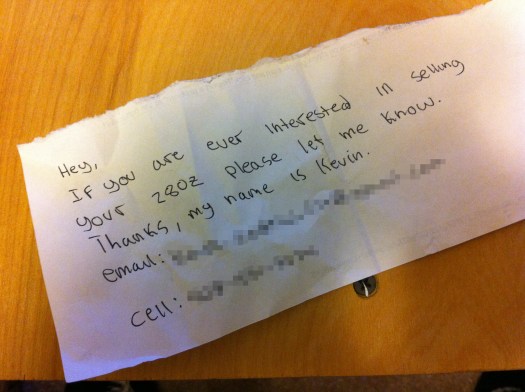 Hey,
If you are ever interested in selling
your 280z please let me know.
Thanks, my name is Kevin.
email:
cell: